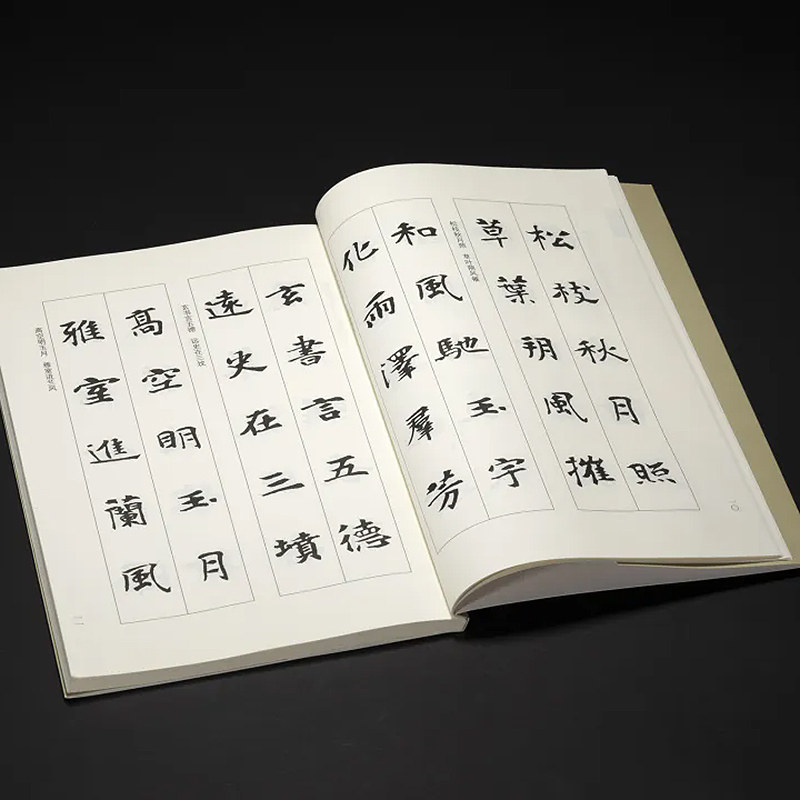 松枝秋月照
草葉朔風摧
松枝秋月照 草叶朔风摧
和風馳玉宇
化雨澤羣芳
一〇
玄書言五德
遠史在三墳
玄书言五德 远史在三坟
高空明玉月
雅室進蘭風
高空明玉月 雅室进兰风